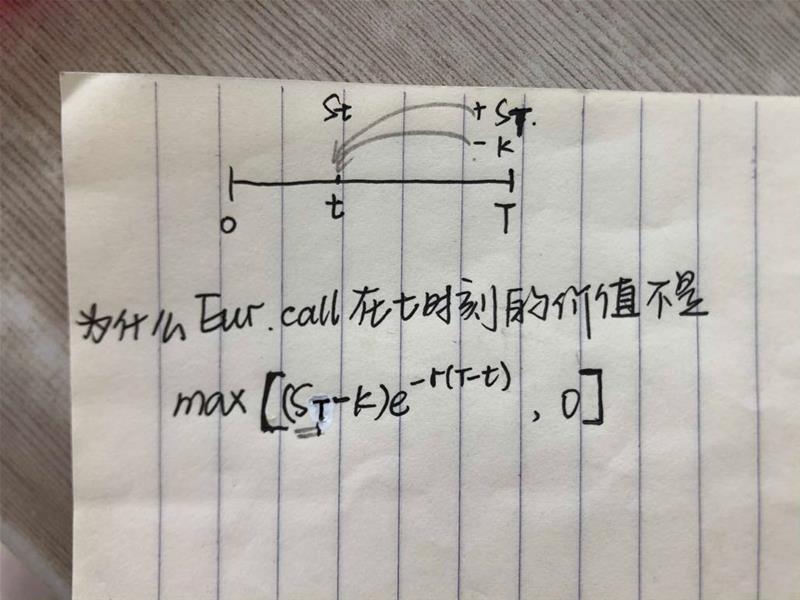 St
+ ST.
- K
0
t
T
为什么 Eur. call 在t时刻的价值不是
max [(ST-K)e^-r(T-t) , 0]